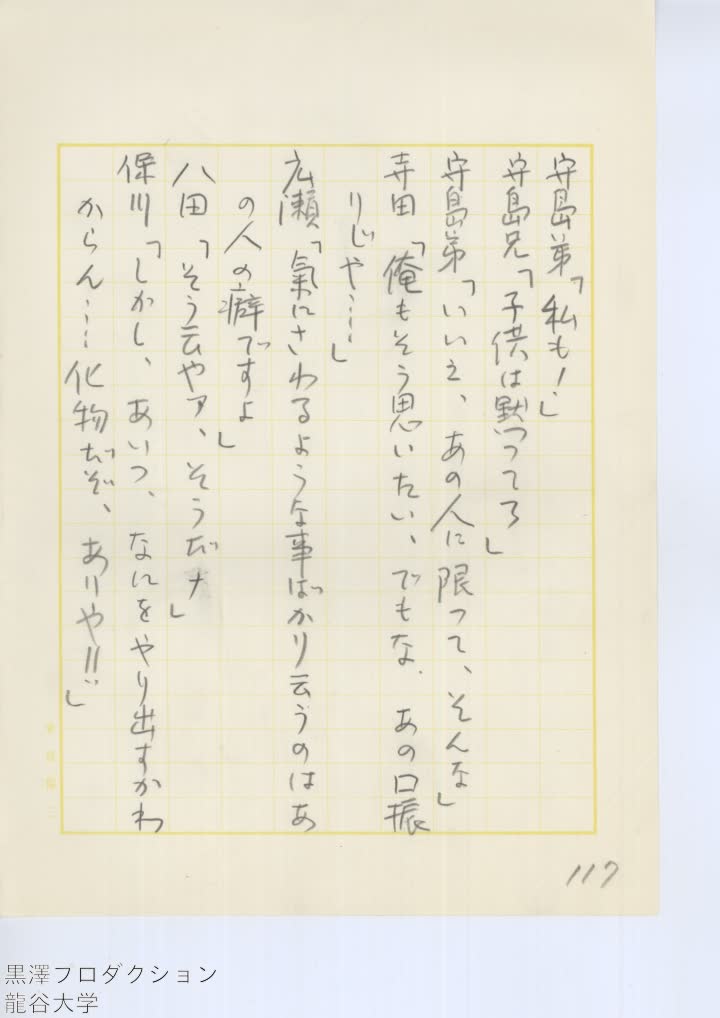 守島弟「私も！」
守島兄「子供は黙ってろ」
守島弟「いいえ、あの人に限って、そんな」
寺田「俺もそう思いたい、でもな、あの口振
りじゃ……」
広瀬「氣にさわるような事ばかり云うのはあ
の人の癖ですよ」
八田「そう云やア、そうだナ」
保川「しかし、あいつ、なにをやり出すかわ
からん……化物だぞ、ありや!!」
117
黒澤プロダクション
龍谷大学